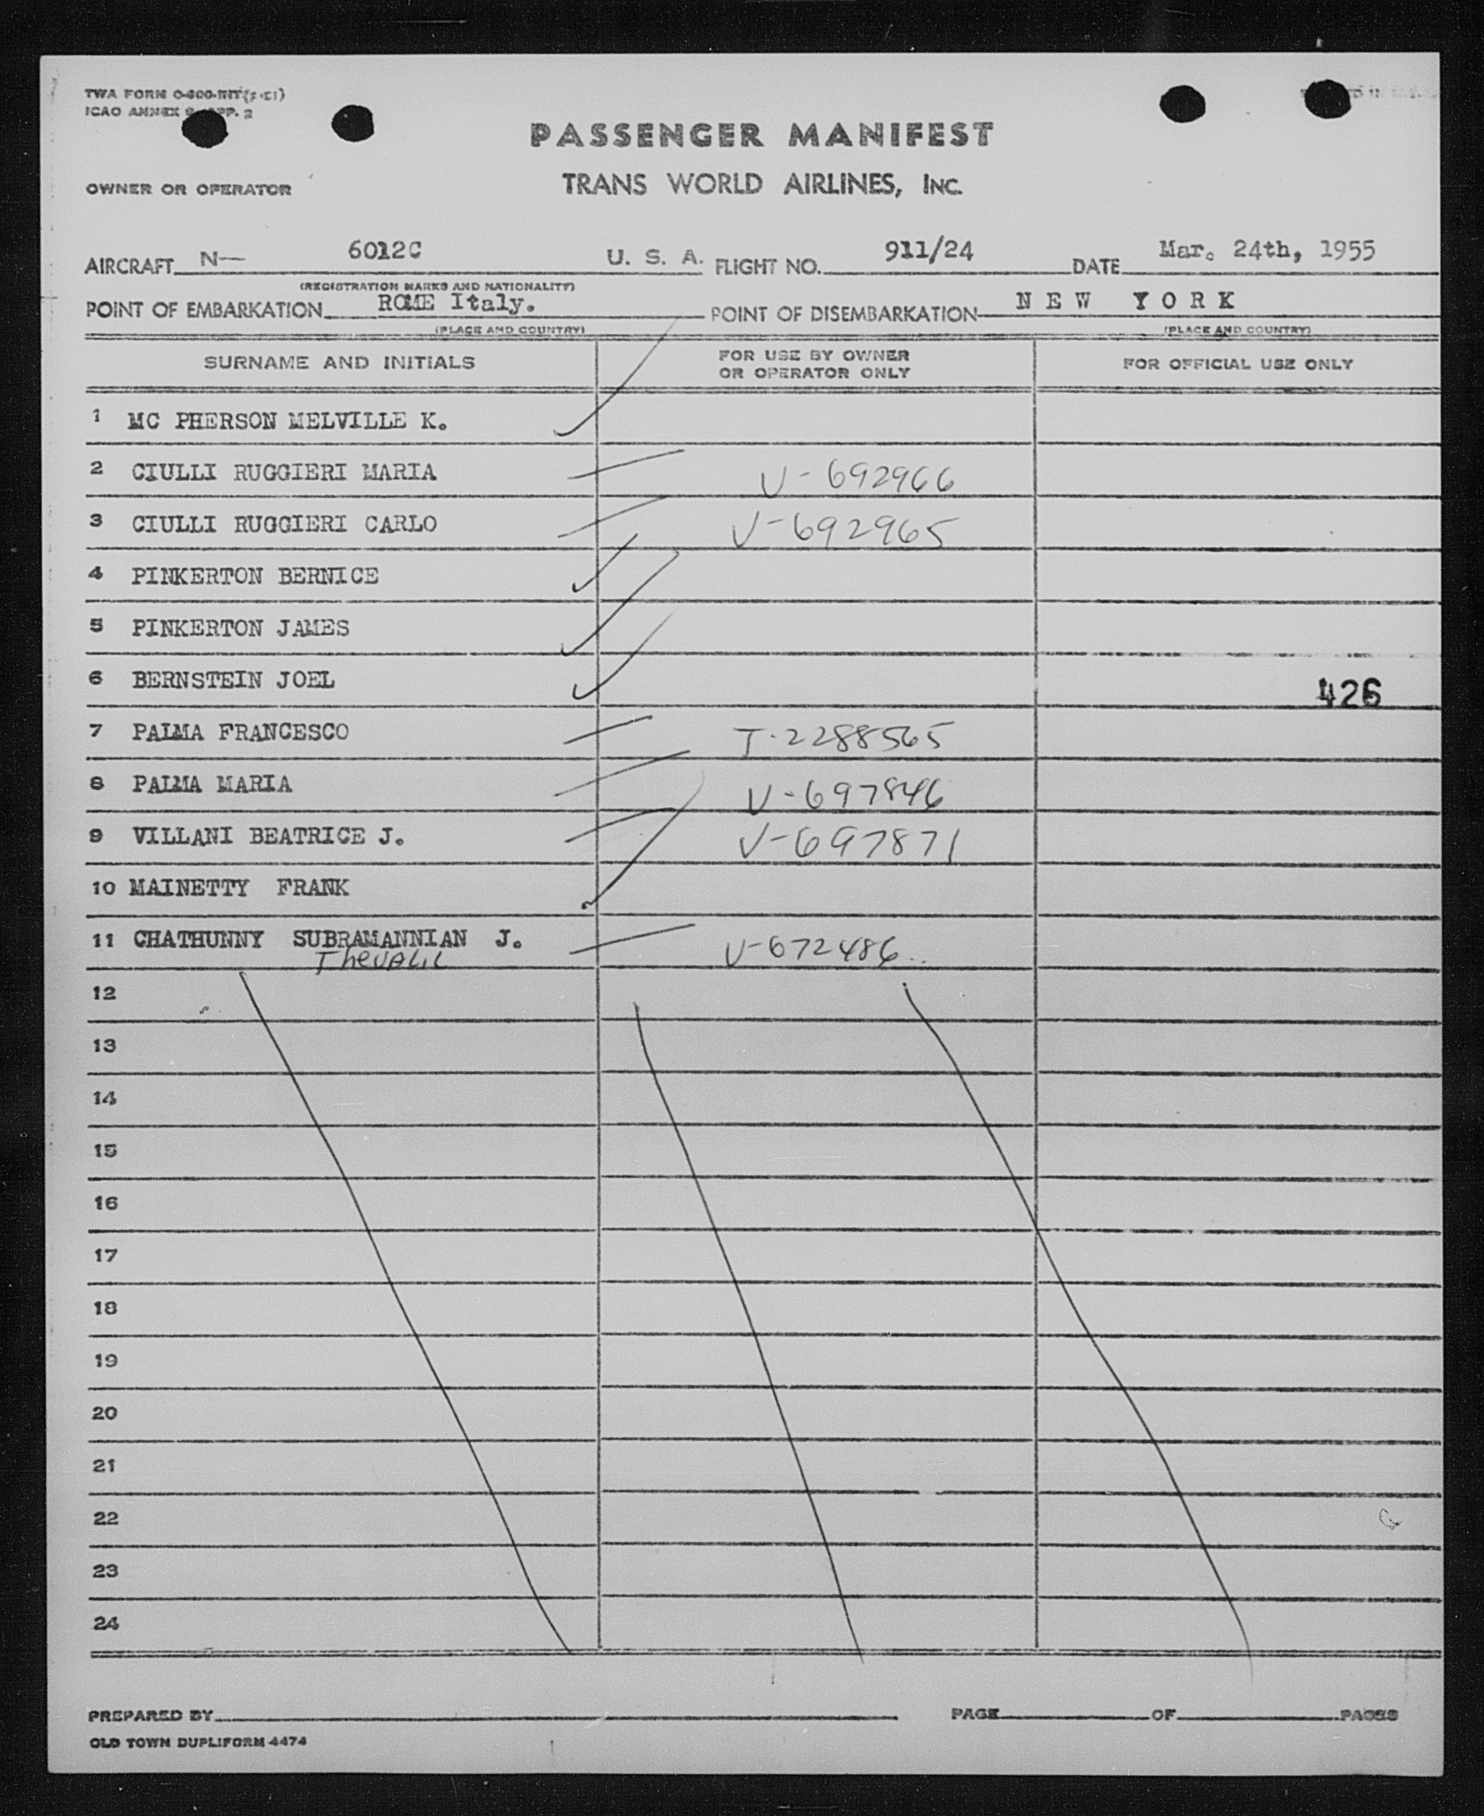 TWA FORM
ICAO ANNEX 9 APP. 2
PASSENGER MANIFEST
TRANS WORLD AIRLINES, INC.
OWNER OR OPERATOR
AIRCRAFT N— 6012C U. S. A. FLIGHT NO. 911/24 DATE Mar. 24th, 1955
(REGISTRATION MARKS AND NATIONALITY)
POINT OF EMBARKATION ROME Italy. POINT OF DISEMBARKATION N E W Y O R K
(PLACE AND COUNTRY) (PLACE AND COUNTRY)
SURNAME AND INITIALS FOR USE BY OWNER OR OPERATOR ONLY FOR OFFICIAL USE ONLY
1 MC PHERSON MELVILLE K.
2 CIULLI RUGGIERI MARIA V-692966
3 CIULLI RUGGIERI CARLO V-692965
4 PINKERTON BERNICE
5 PINKERTON JAMES
6 BERNSTEIN JOEL 426
7 PALMA FRANCESCO T-2288565
8 PALMA MARIA V-697846
9 VILLANI BEATRICE J. V-697871
10 MAINETTY FRANK
11 CHATHUNNY SUBRAMANNIAN J. V-672486
Thevalil
12
13
14
15
16
17
18
19
20
21
22
23
24
PREPARED BY PAGE OF PAGES
OLD TOWN DUPLIFORM 4474